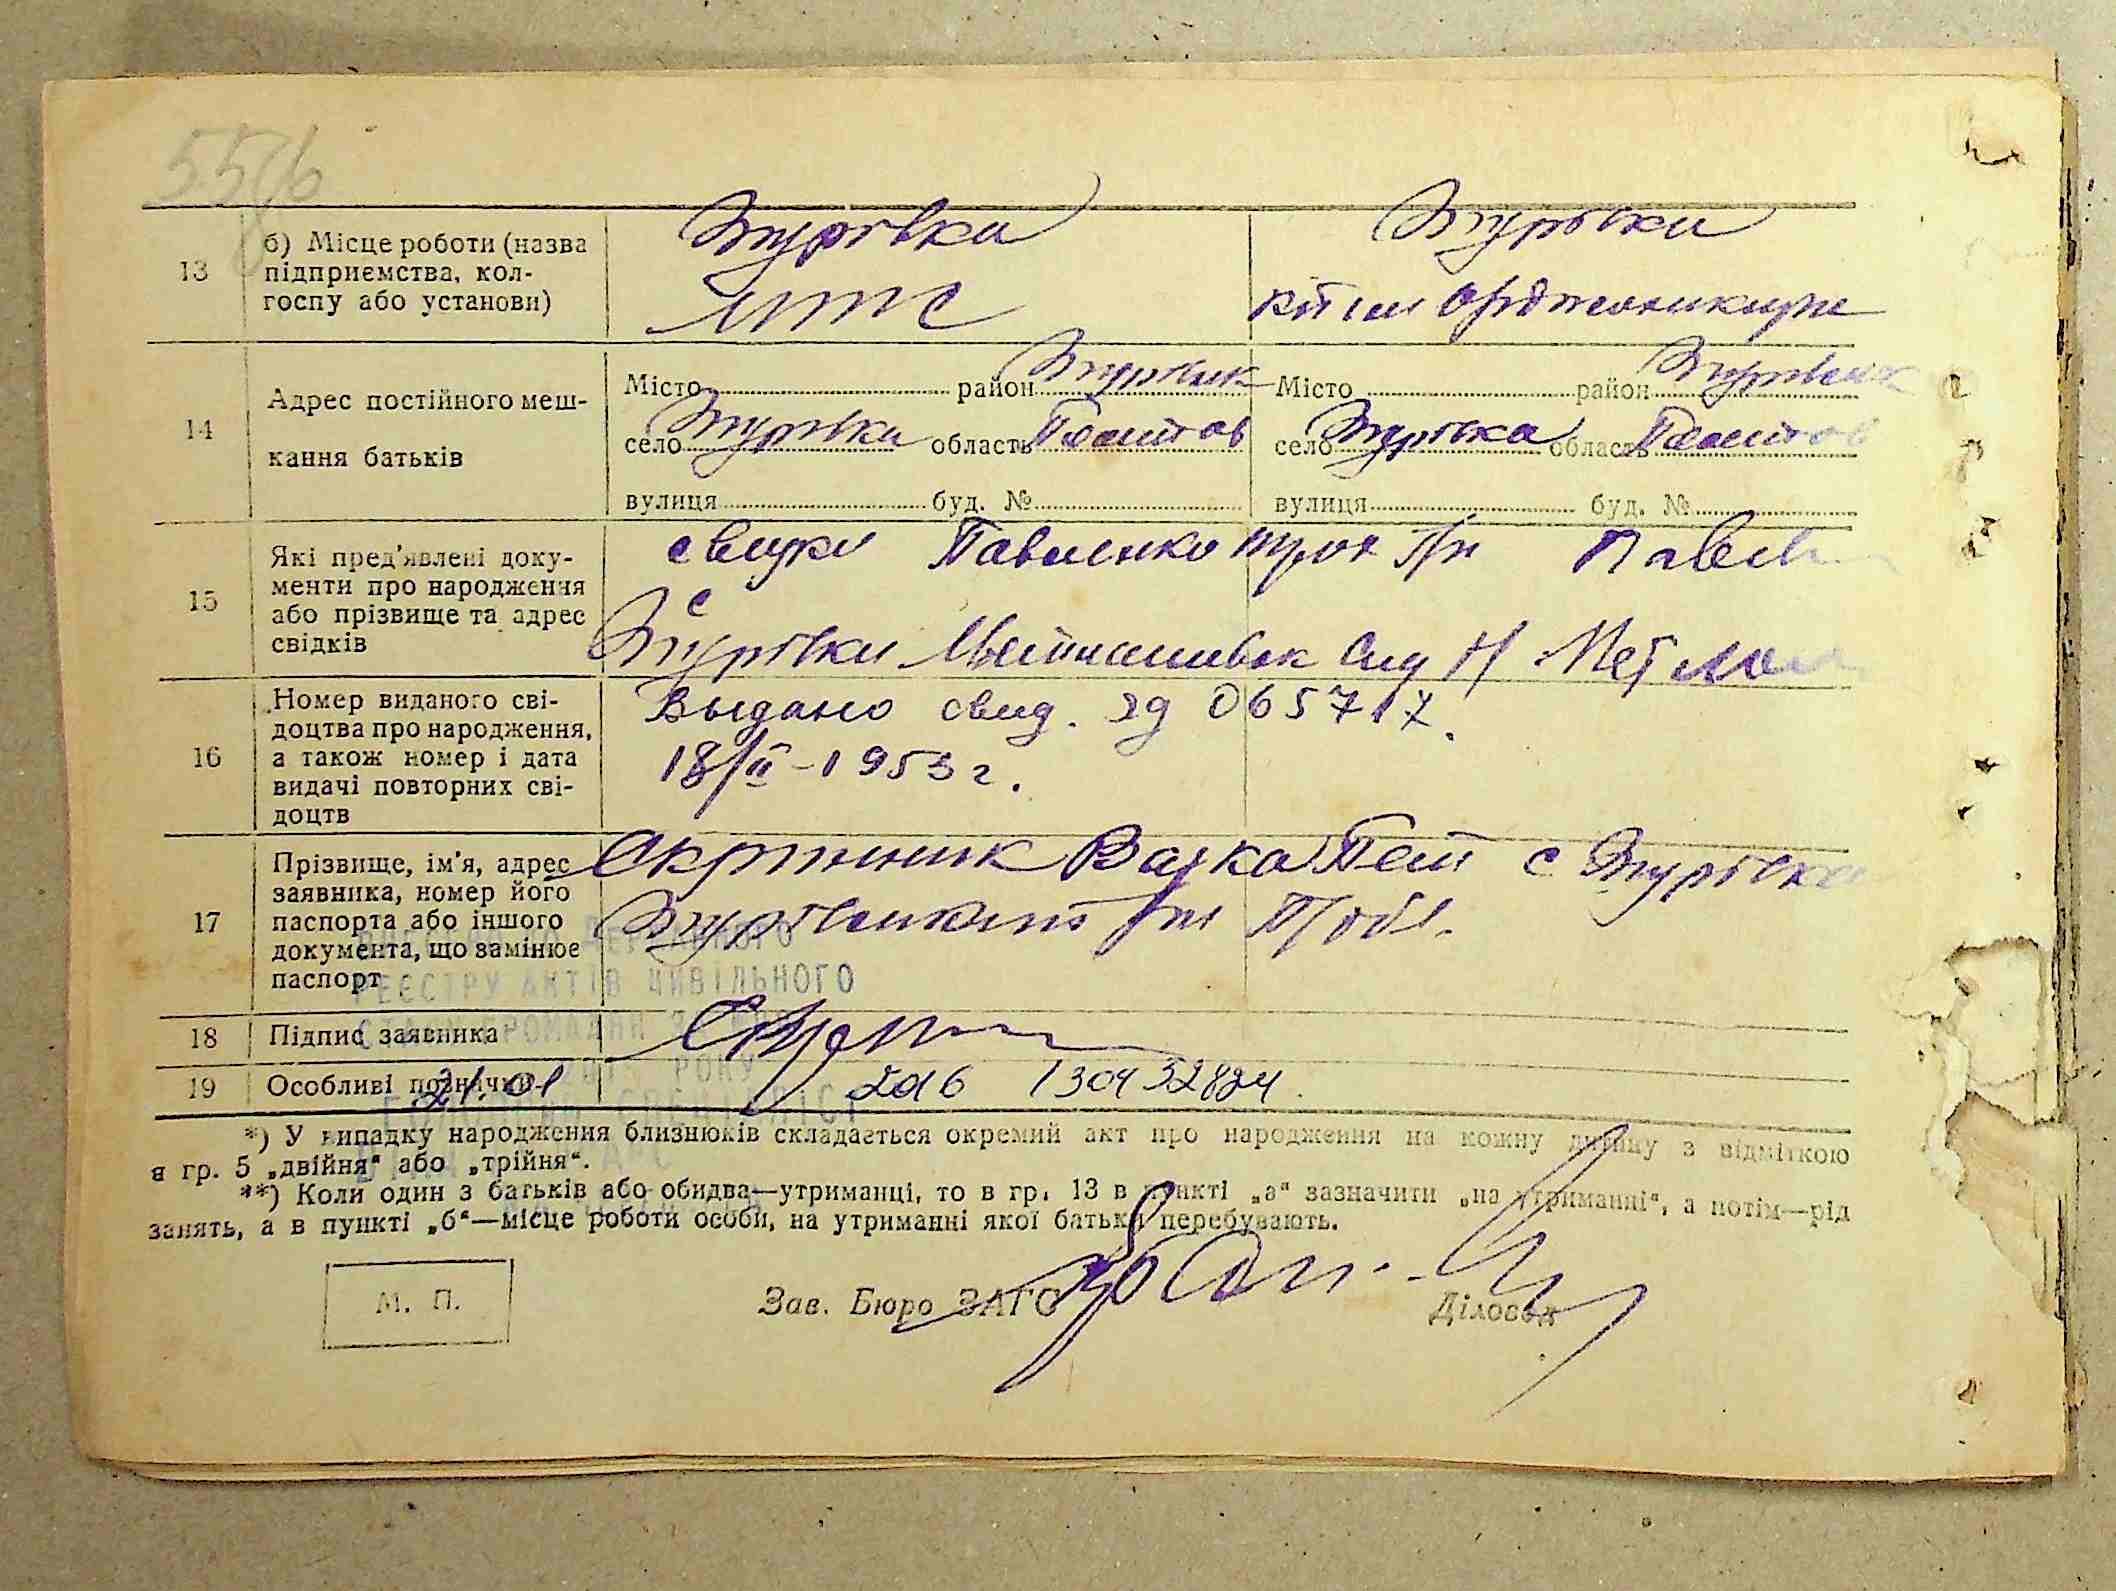 13
б) Місце роботи (назва
підприємства, кол-
госпу або установи)
Згурівка
МТС
Згурівка
к-п ім Орджоникидзе
14
Адрес постійного меш-
кання батьків
Місто район Згурівськ
село Згурівка область Полтав
вулиця буд. №
Місто район Згурівськ
село Згурівка область Полтав
вулиця буд. №
15
Які пред'явлені доку-
менти про народження
або прізвище та адрес
свідків
свидки Павленко
с
Згурівки
16
Номер виданого сві-
доцтва про народження,
а також номер і дата
видачі повторних сві-
доцтв
Выдано свид. 065717.
18/II-1953 г.
17
Прізвище, ім'я, адрес
заявника, номер його
паспорта або іншого
документа, що замінює
паспорт
Скрипник с Згурівка
Згурівського р-н П/обл.
РЕЄСТРУ АКТІВ ЦИВІЛЬНОГО
СТАНУ ГРОМАДЯН
РОКУ
18
Підпис заявника
19
Особливі позначки
21.01 2016 130432824.
*) У випадку народження близнюків складається окремий акт про народження на кожну дитину з відміткою
в гр. 5 „двійня“ або „трійня“.
**) Коли один з батьків або обидва—утриманці, то в гр. 13 в пункті „а“ зазначити „на утриманні“, а потім—рід
занять, а в пункті „б“—місце роботи особи, на утриманні якої батьки перебувають.
М. П.
Зав. Бюро ЗАГС
Діловод